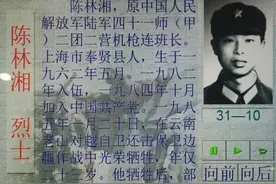 陈林湘 烈士
陈林湘，原中国人民
解放军陆军四十一师（甲
）二团二营机枪连班长。
上海市奉贤县人，生于一
九六二年五月。一九八二
年入伍，一九八四年十月
加入中国共产党。一九八
五年一月二十日，在云南
老山对越自卫还击保卫边
疆作战中光荣牺牲，年仅
二十三岁。他牺牲后，部
31—10
向前 向后